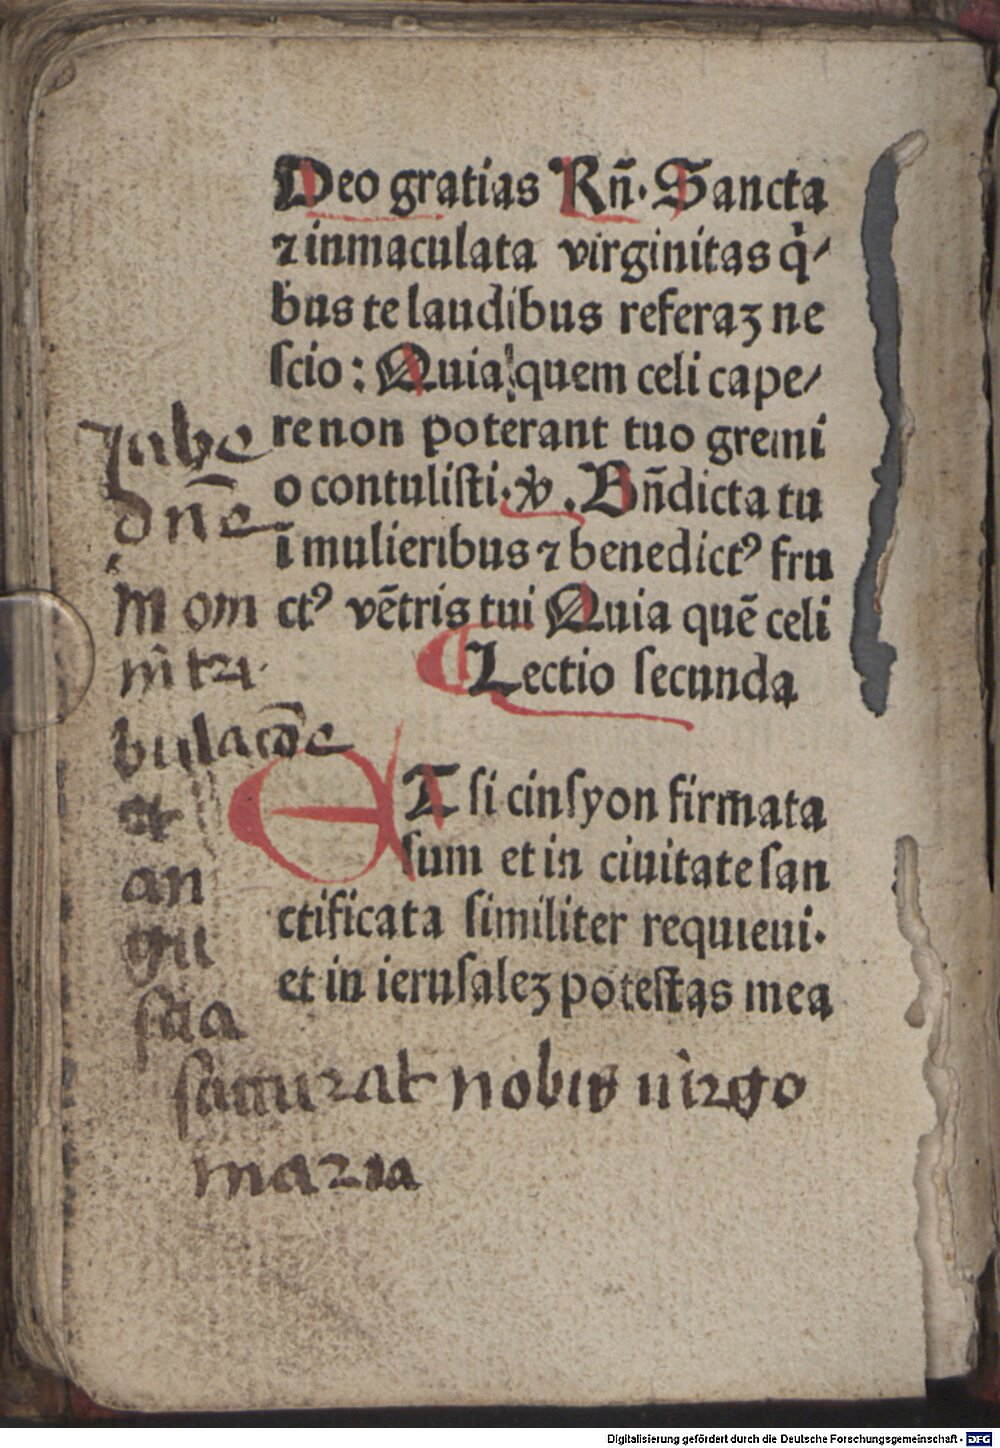 Deo gratias Rn̄. Sancta
⁊ inmaculata virginitas q̇⸗
bus te laudibus referaꝫ ne
ſcio: Quia quem celi cape⸗
re non poterant tuo gremi
o contuliſti. ℣. Bn̄dicta tu
ī mulieribus ⁊ benedictꝰ fru
ctꝰ vētris tui Quia quē celi
Lectio secunda
ET ſi cinſyon firmata
ſum et in ciuitate ſan
ctificata ſimiliter requieui.
et in ieruſaleꝫ poteſtas mea
dn̄e
in om
ni tri
bulacōe
et
an
gu
ſtia
nobis uirgo
maria
Digitalisierung gefördert durch die Deutsche Forschungsgemeinschaft - DFG